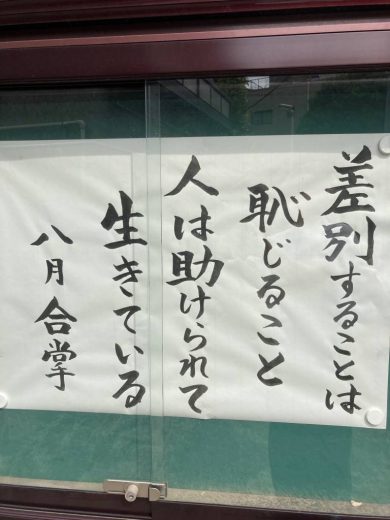 差別することは
恥じること
人は助けられて
生きている
八月 合掌